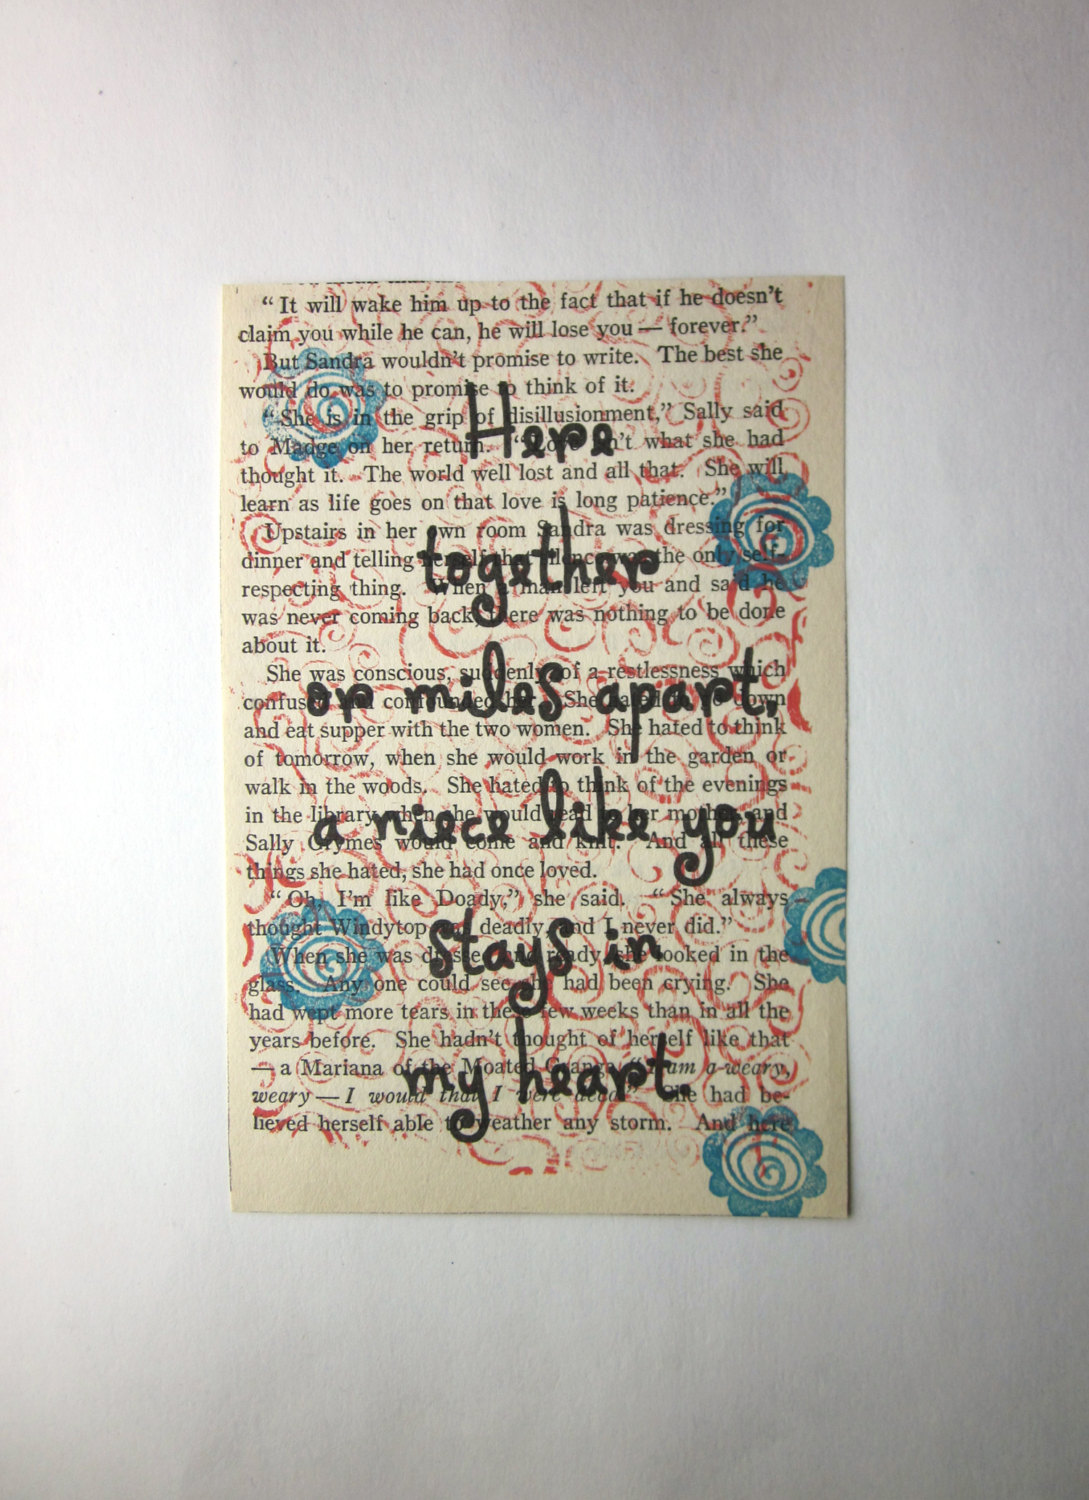 “ It will wake him up to the fact that if he doesn’t
claim you while he can, he will lose you — forever.”
But Sandra wouldn’t promise to write. The best she
would do was to promise to think of it.
“ She is in the grip of disillusionment,” Sally said
Here
to Madge on her return. “ n’t what she had
thought it. The world well lost and all that. She will
learn as life goes on that love is long patience.”
Upstairs in her own room Sandra was dressing for
together
dinner and telling herself that silence was the only self-
respecting thing. When a man left you and said he
was never coming back there was nothing to be done
about it.
She was conscious, suddenly, of a restlessness which
or miles apart,
confused and confounded her. She hated down
and eat supper with the two women. She hated to think
of tomorrow, when she would work in the garden or
walk in the woods. She hated to think of the evenings
in the library when she would read to her mother and
a niece like you
Sally Grymes would come and knit. And all these
things she hated, she had once loved.
“ Oh, I’m like Doady,” she said. “ She always
thought Windytop was deadly, and I never did.”
stays in
When she was dressed and ready, she looked in the
glass. Any one could see she had been crying. She
had wept more tears in these few weeks than in all the
years before. She hadn’t thought of herself like that
— a Mariana of the Moated Grange, “ I am a-weary,
my heart.
weary — I would that I were dead.” She had be-
lieved herself able to weather any storm. And here